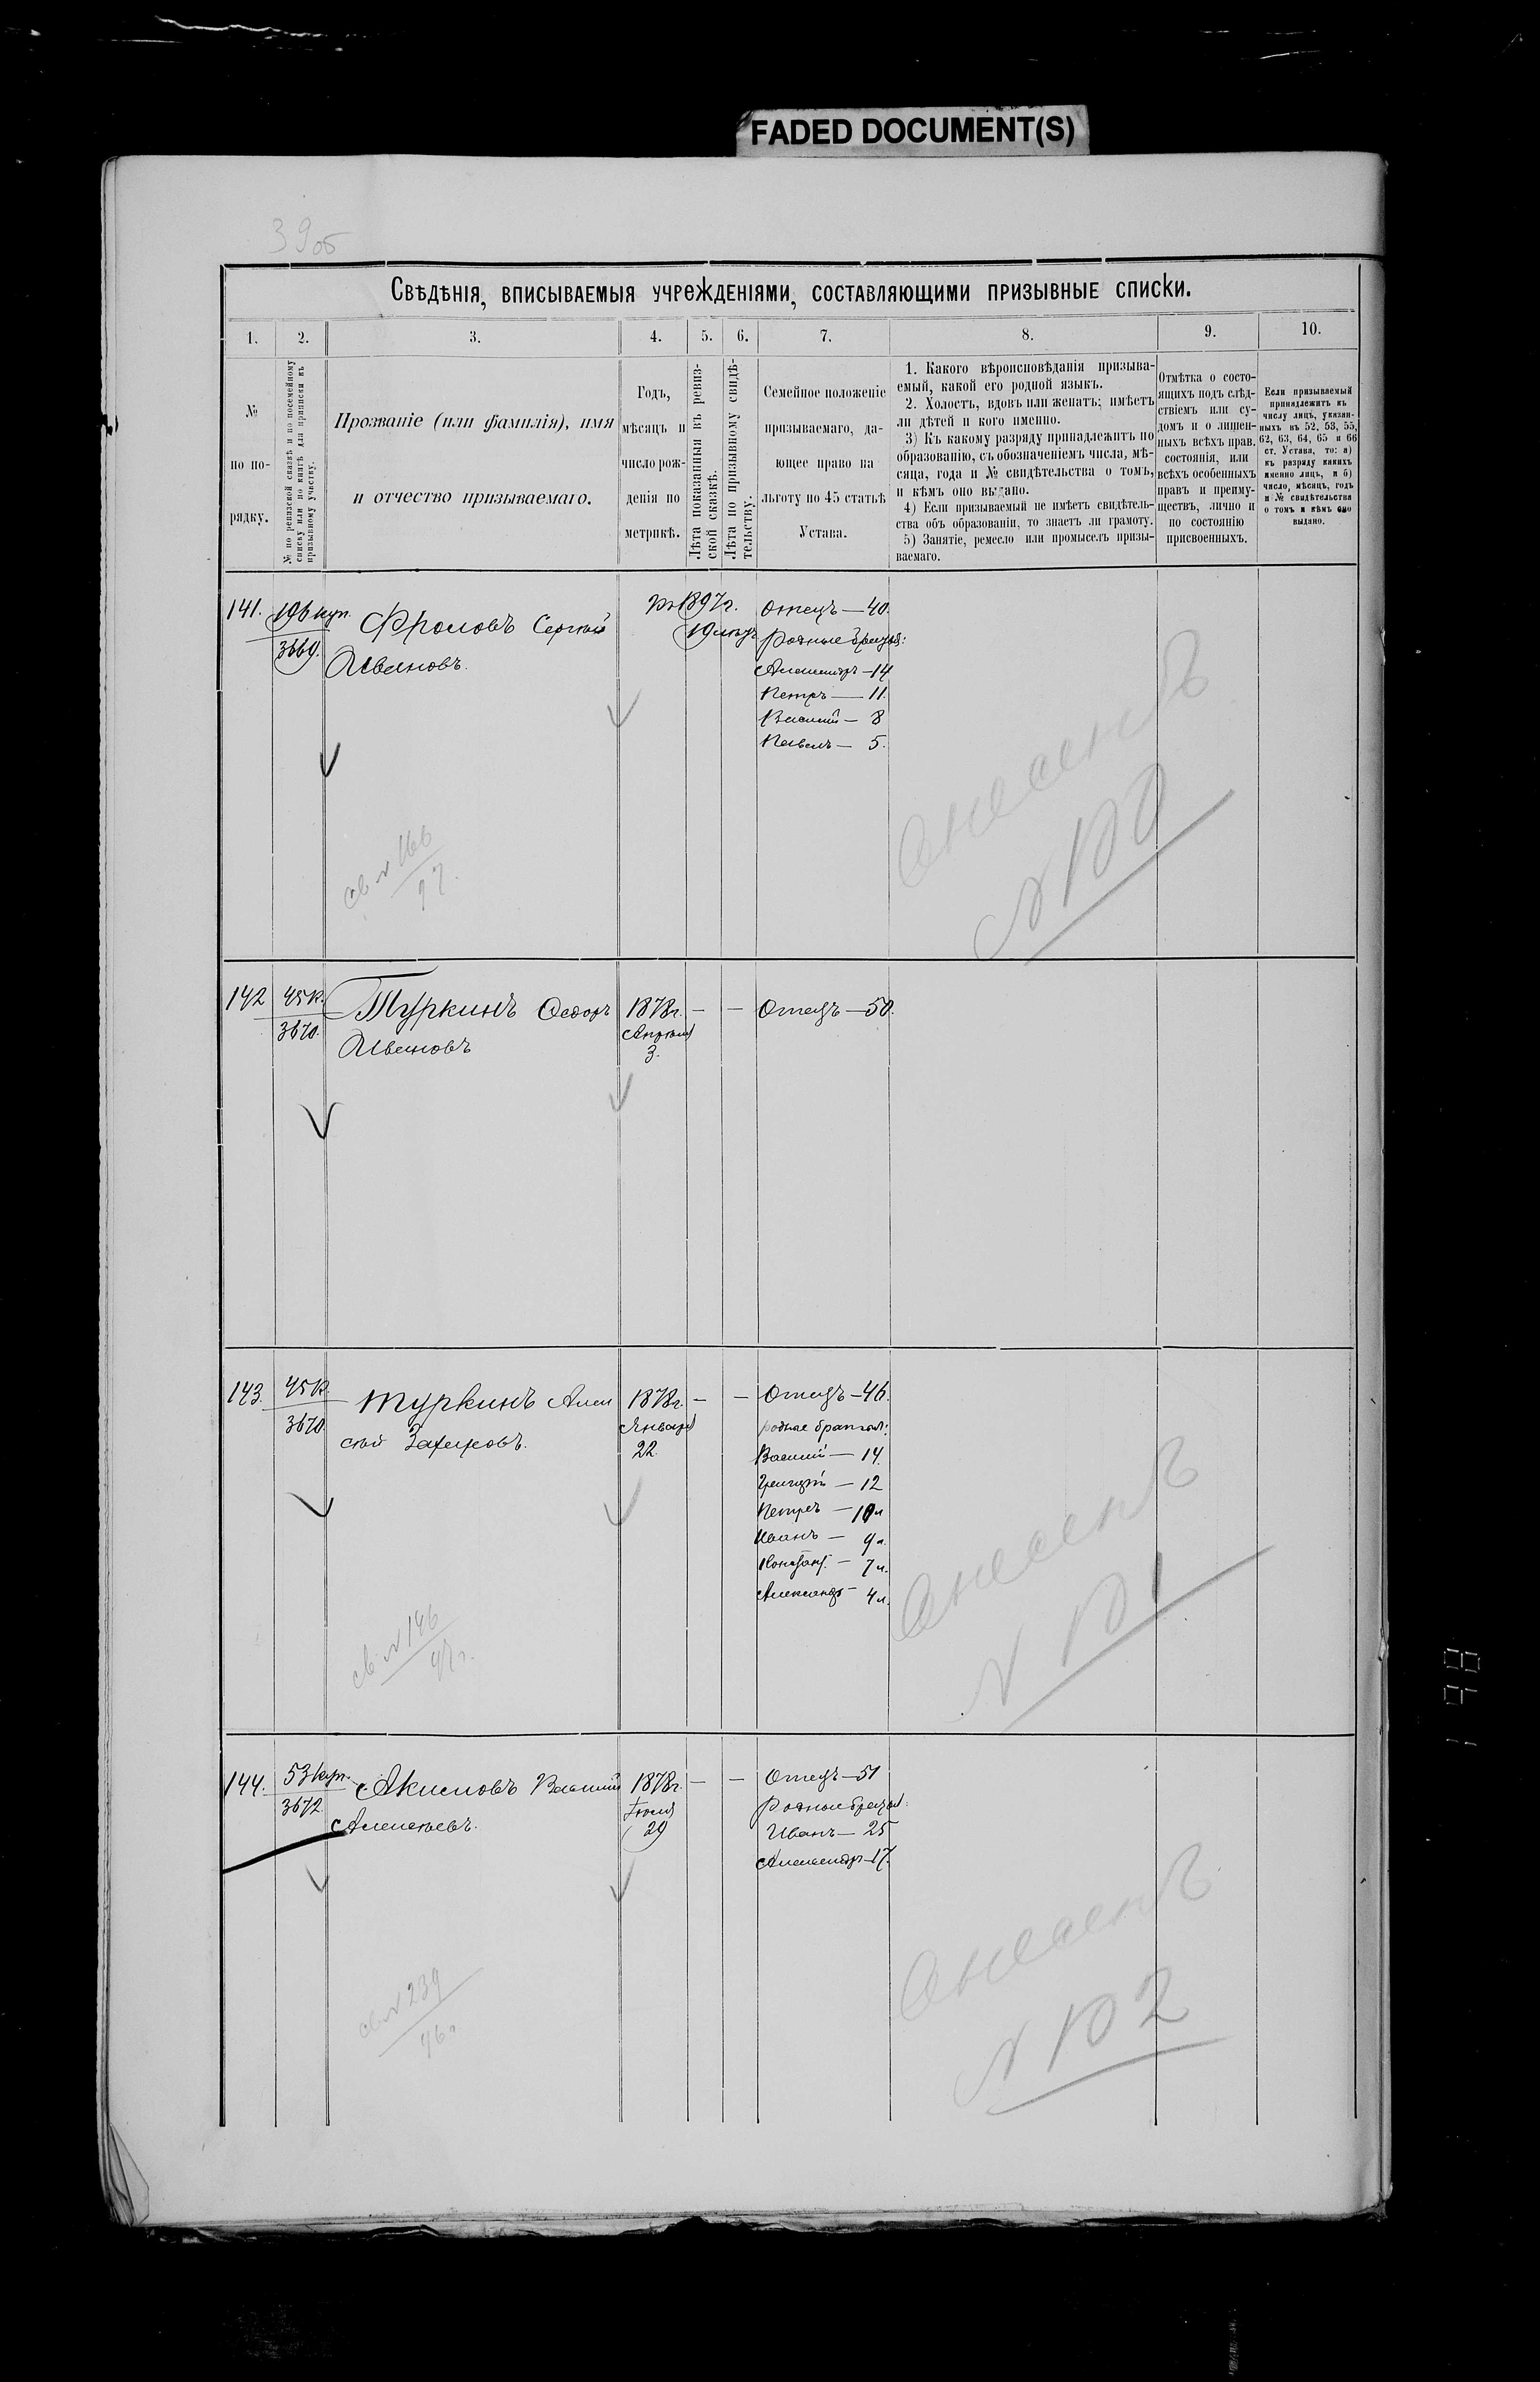 FADED DOCUMENT(S)
39об
Свѣдѣнія, вписываемыя учрежденіями, составляющими призывные списки.
1. 2. 3. 4. 5. 6. 7. 8. 9. 10.
№
по по-
рядку.
№ по ревизской сказкѣ и по посемейному
списку или по книгѣ для приписки къ
призывному участку.
Прозваніе (или фамилія), имя
и отчество призываемаго.
Годъ,
мѣсяцъ и
число рож-
денія по
метрикѣ.
Лѣта показанныя въ ревиз-
ской сказкѣ.
Лѣта по призывному свидѣ-
тельству.
Семейное положеніе
призываемаго, да-
ющее право на
льготу по 45 статьѣ
Устава.
1. Какого вѣроисповѣданія призыва-
емый, какой его родной языкъ.
2. Холостъ, вдовъ или женатъ; имѣетъ
ли дѣтей и кого именно.
3) Къ какому разряду принадлежитъ по
образованію, съ обозначеніемъ числа, мѣ-
сяца, года и № свидѣтельства о томъ,
и кѣмъ оно выдано.
4) Если призываемый не имѣетъ свидѣтель-
ства объ образованіи, то знаетъ ли грамоту.
5) Занятіе, ремесло или промыселъ призы-
ваемаго.
Отмѣтка о состо-
ящихъ подъ слѣд-
ствіемъ или су-
домъ и о лишен-
ныхъ всѣхъ прав.
состоянія, или
всѣхъ особенныхъ
правъ и преиму-
ществъ, лично и
по состоянію
присвоенныхъ.
Если призываемый
принадлежитъ къ
числу лицъ, указан-
ныхъ въ 52, 53, 55,
62, 63, 64, 65 и 66
ст. Устава, то: а)
къ разряду какихъ
именно лицъ, и б)
число, мѣсяцъ, годъ
и № свидѣтельства
о томъ и кѣмъ оно
выдано.
141. 196 куп.
3669.
Фроловъ Сергѣй
Ивановъ.
1897г.
19 лѣтъ
Отецъ — 40.
Родные братья:
Александръ — 14
Петръ — 11.
Василій — 8
Павелъ — 5.
св № 166
97.
142 45 к.
3670.
Туркинъ Ѳедоръ
Ивановъ
1878г.
Апрѣля
3.
— —
Отецъ — 50.
143. 45 к.
3670.
Туркинъ Алек
сѣй Захаровъ.
1878г.
Января
22
— —
Отецъ — 46.
родные братья:
Василій — 14.
Григорій — 12
Петръ — 10 л
Иванъ — 9 л.
Констант. — 7 л.
Александръ — 4 л.
св. № 146
97г.
144. 53 куп.
3672
Акимовъ Василій
Алексѣевъ.
1878г.
Іюля
29
— —
Отецъ — 51
Родные братья:
Иванъ — 25
Александръ — 17.
св № 239
96г
198